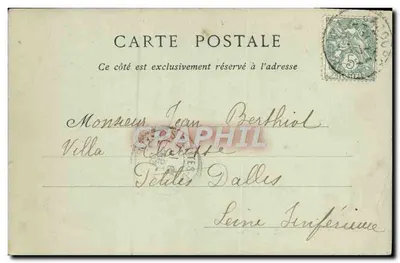 CARTE POSTALE
Ce côté est exclusivement réservé à l'adresse
Monsieur Jean Berthiol
CPAPHIL
Villa
Petites Dalles
Seine Inférieure